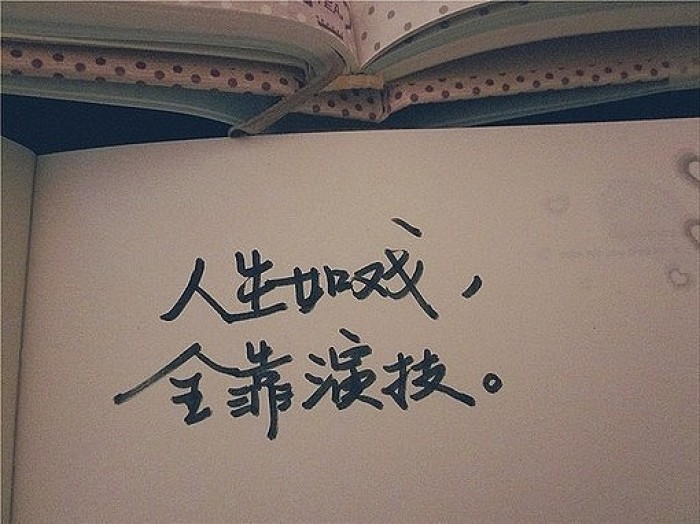 TEA
人生如戏，
全靠演技。